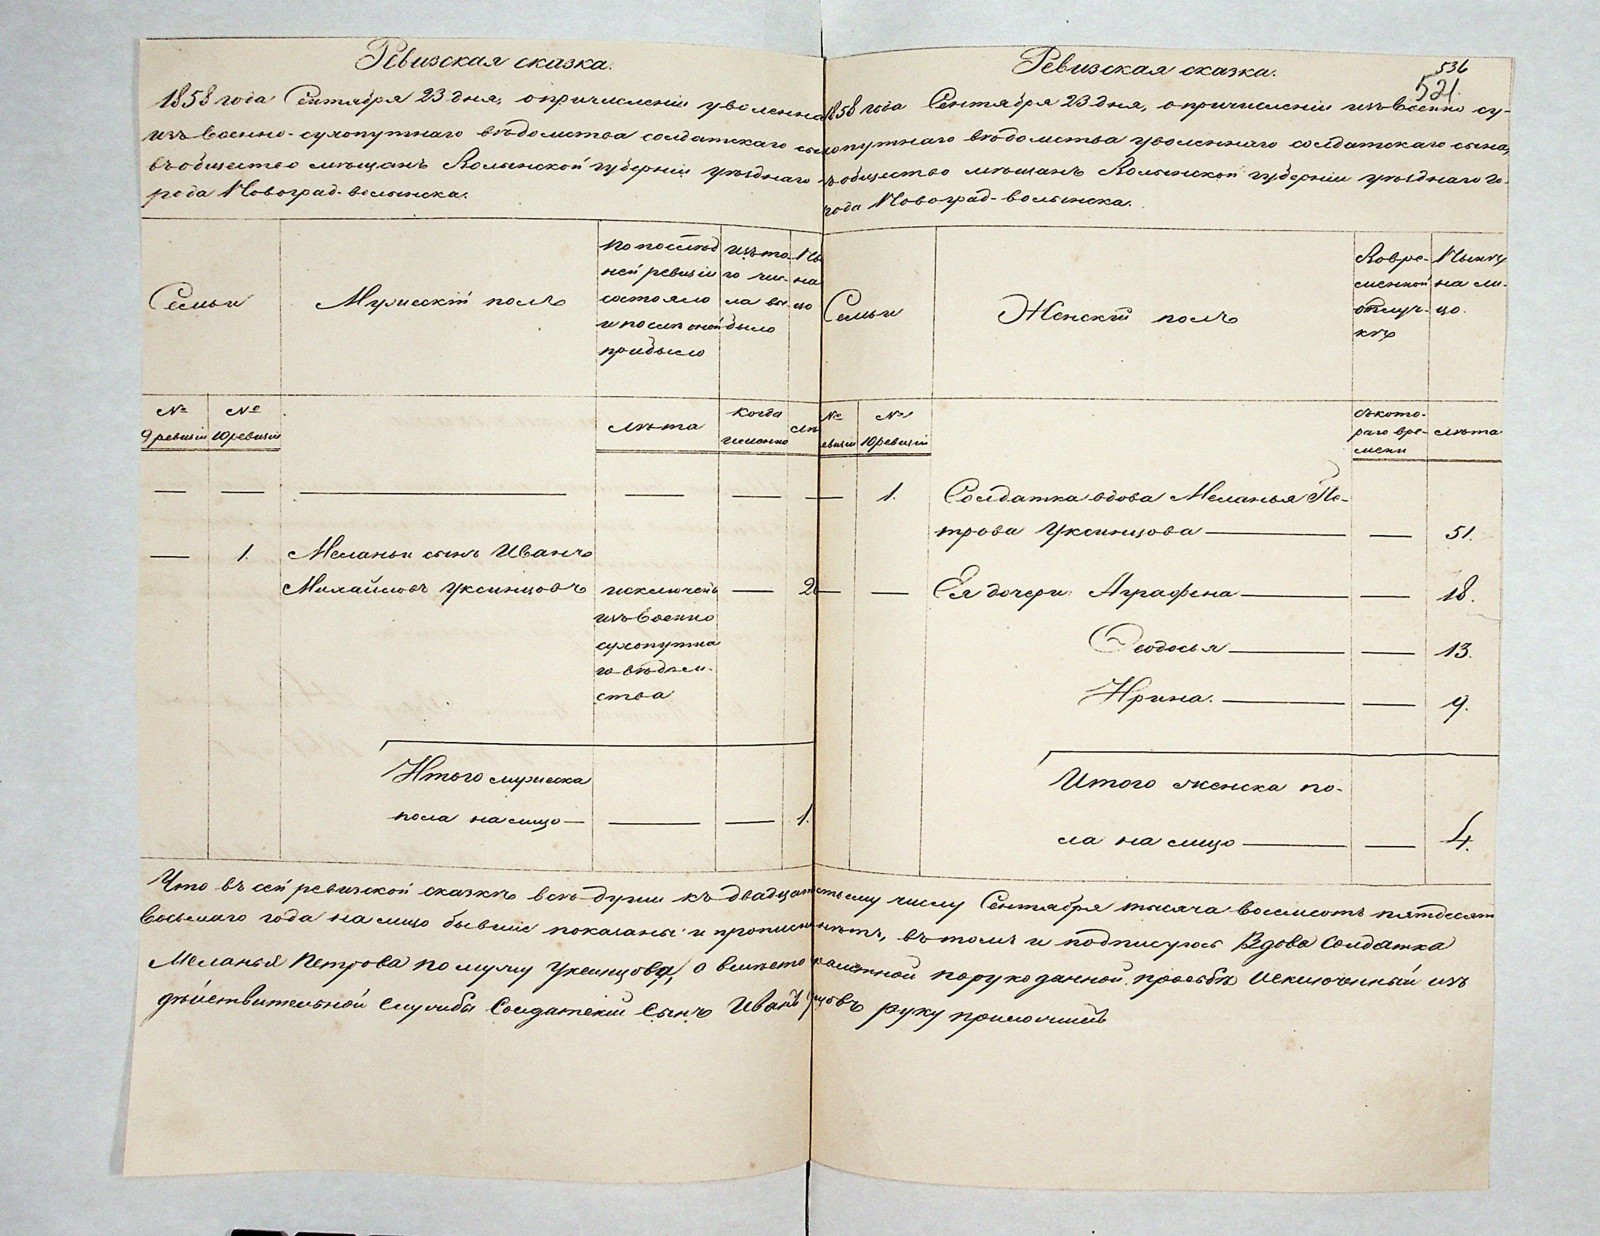 Ревизская сказка.
1858 года Сентября 23 дня, о причислении уволенна
изъ Военно-сухопутнаго вѣдомства солдатскаго сы
въ общество мѣщанъ Волынской губернии уѣзднаго
рода Новоград-волынска.
Семьи
Мужескій полъ
По послѣд
ней ревизіи
состояло
и послѣ оной
прибыло
Изъ то
го чис-
ла вы
было
Ны
на
цо
№
9 ревизіи
№
10 ревизіи
лѣта
когда
именно
лѣт
1.
Меланьи сынъ Иванъ
Михайловъ Уксинцовъ
исключенъ
изъ Военно
сухопутна
го вѣдом-
ства
2
Итого мужеска
пола на лицо
1.
536
521.
Ревизская сказка.
1858 года Сентября 23 дня, о причислении изъ Военно су-
опутнаго вѣдомства уволеннаго солдатскаго сына,
въ общество мѣщанъ Волынской губернии уѣзднаго го-
рода Новоград-волынска.
Семьи
Женскій полъ
Во вре-
менной
отлуч-
кѣ
Нынѣ
на ли-
цо.
№
евизіи
№
10 ревизіи
съ кото-
раго вре-
мени
лѣта
1.
Солдатка вдова Меланья Пе-
трова Уксинцова
51.
Ея дочери: Аграфена
18.
Ѳеодосья
13.
Ирина.
9.
Итого женска по-
ла на лицо
4.
Что въ сей ревизской сказкѣ всѣ души къ двадцат тьему числу Сентября тысяча восемсотъ пятдесят
восьмаго года на лицо бывшіе показаны и прописки нѣтъ, въ томъ и подписуюсь Вдова Солдатка
Меланья Петрова по мужу Уксинцова, а вмѣсто по личной порукоданной просьбѣ Исключенный изъ
дѣйствительной службы Солдатскій Сынъ Иванъ цовъ руку приложилъ